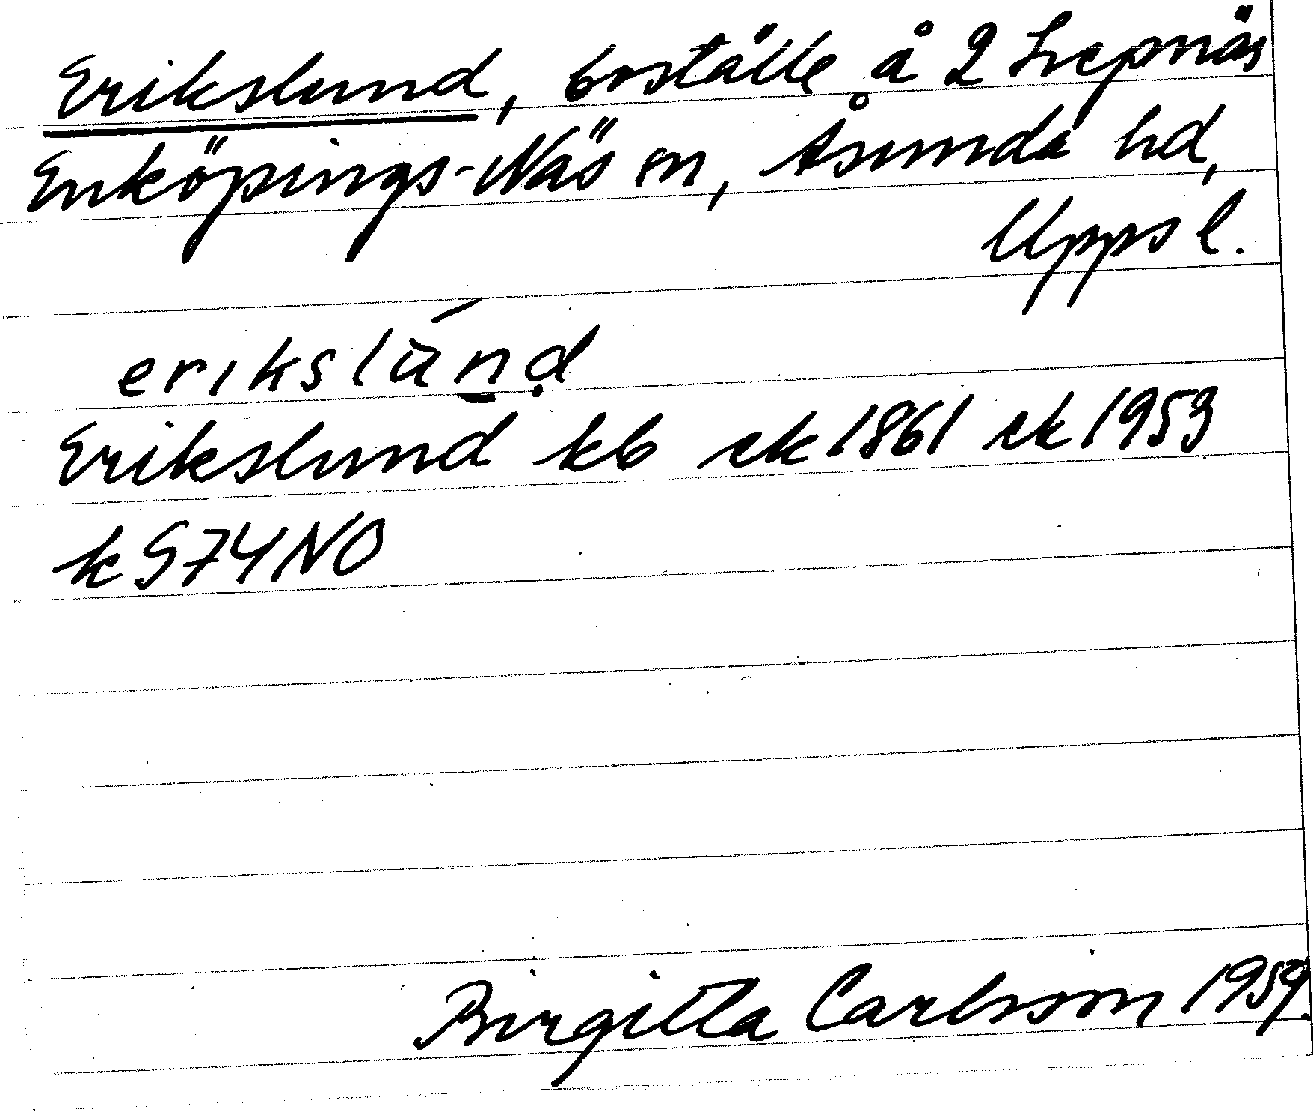 Erikslund, boställe å 2 Svepnäs
Enköpings-Näs sn, Åsunda hd,
Upps l.
erikslu̇́nḍ
Erikslund kb ek 1861 ek 1953
k S74NO
Birgitta Carlsson 1959